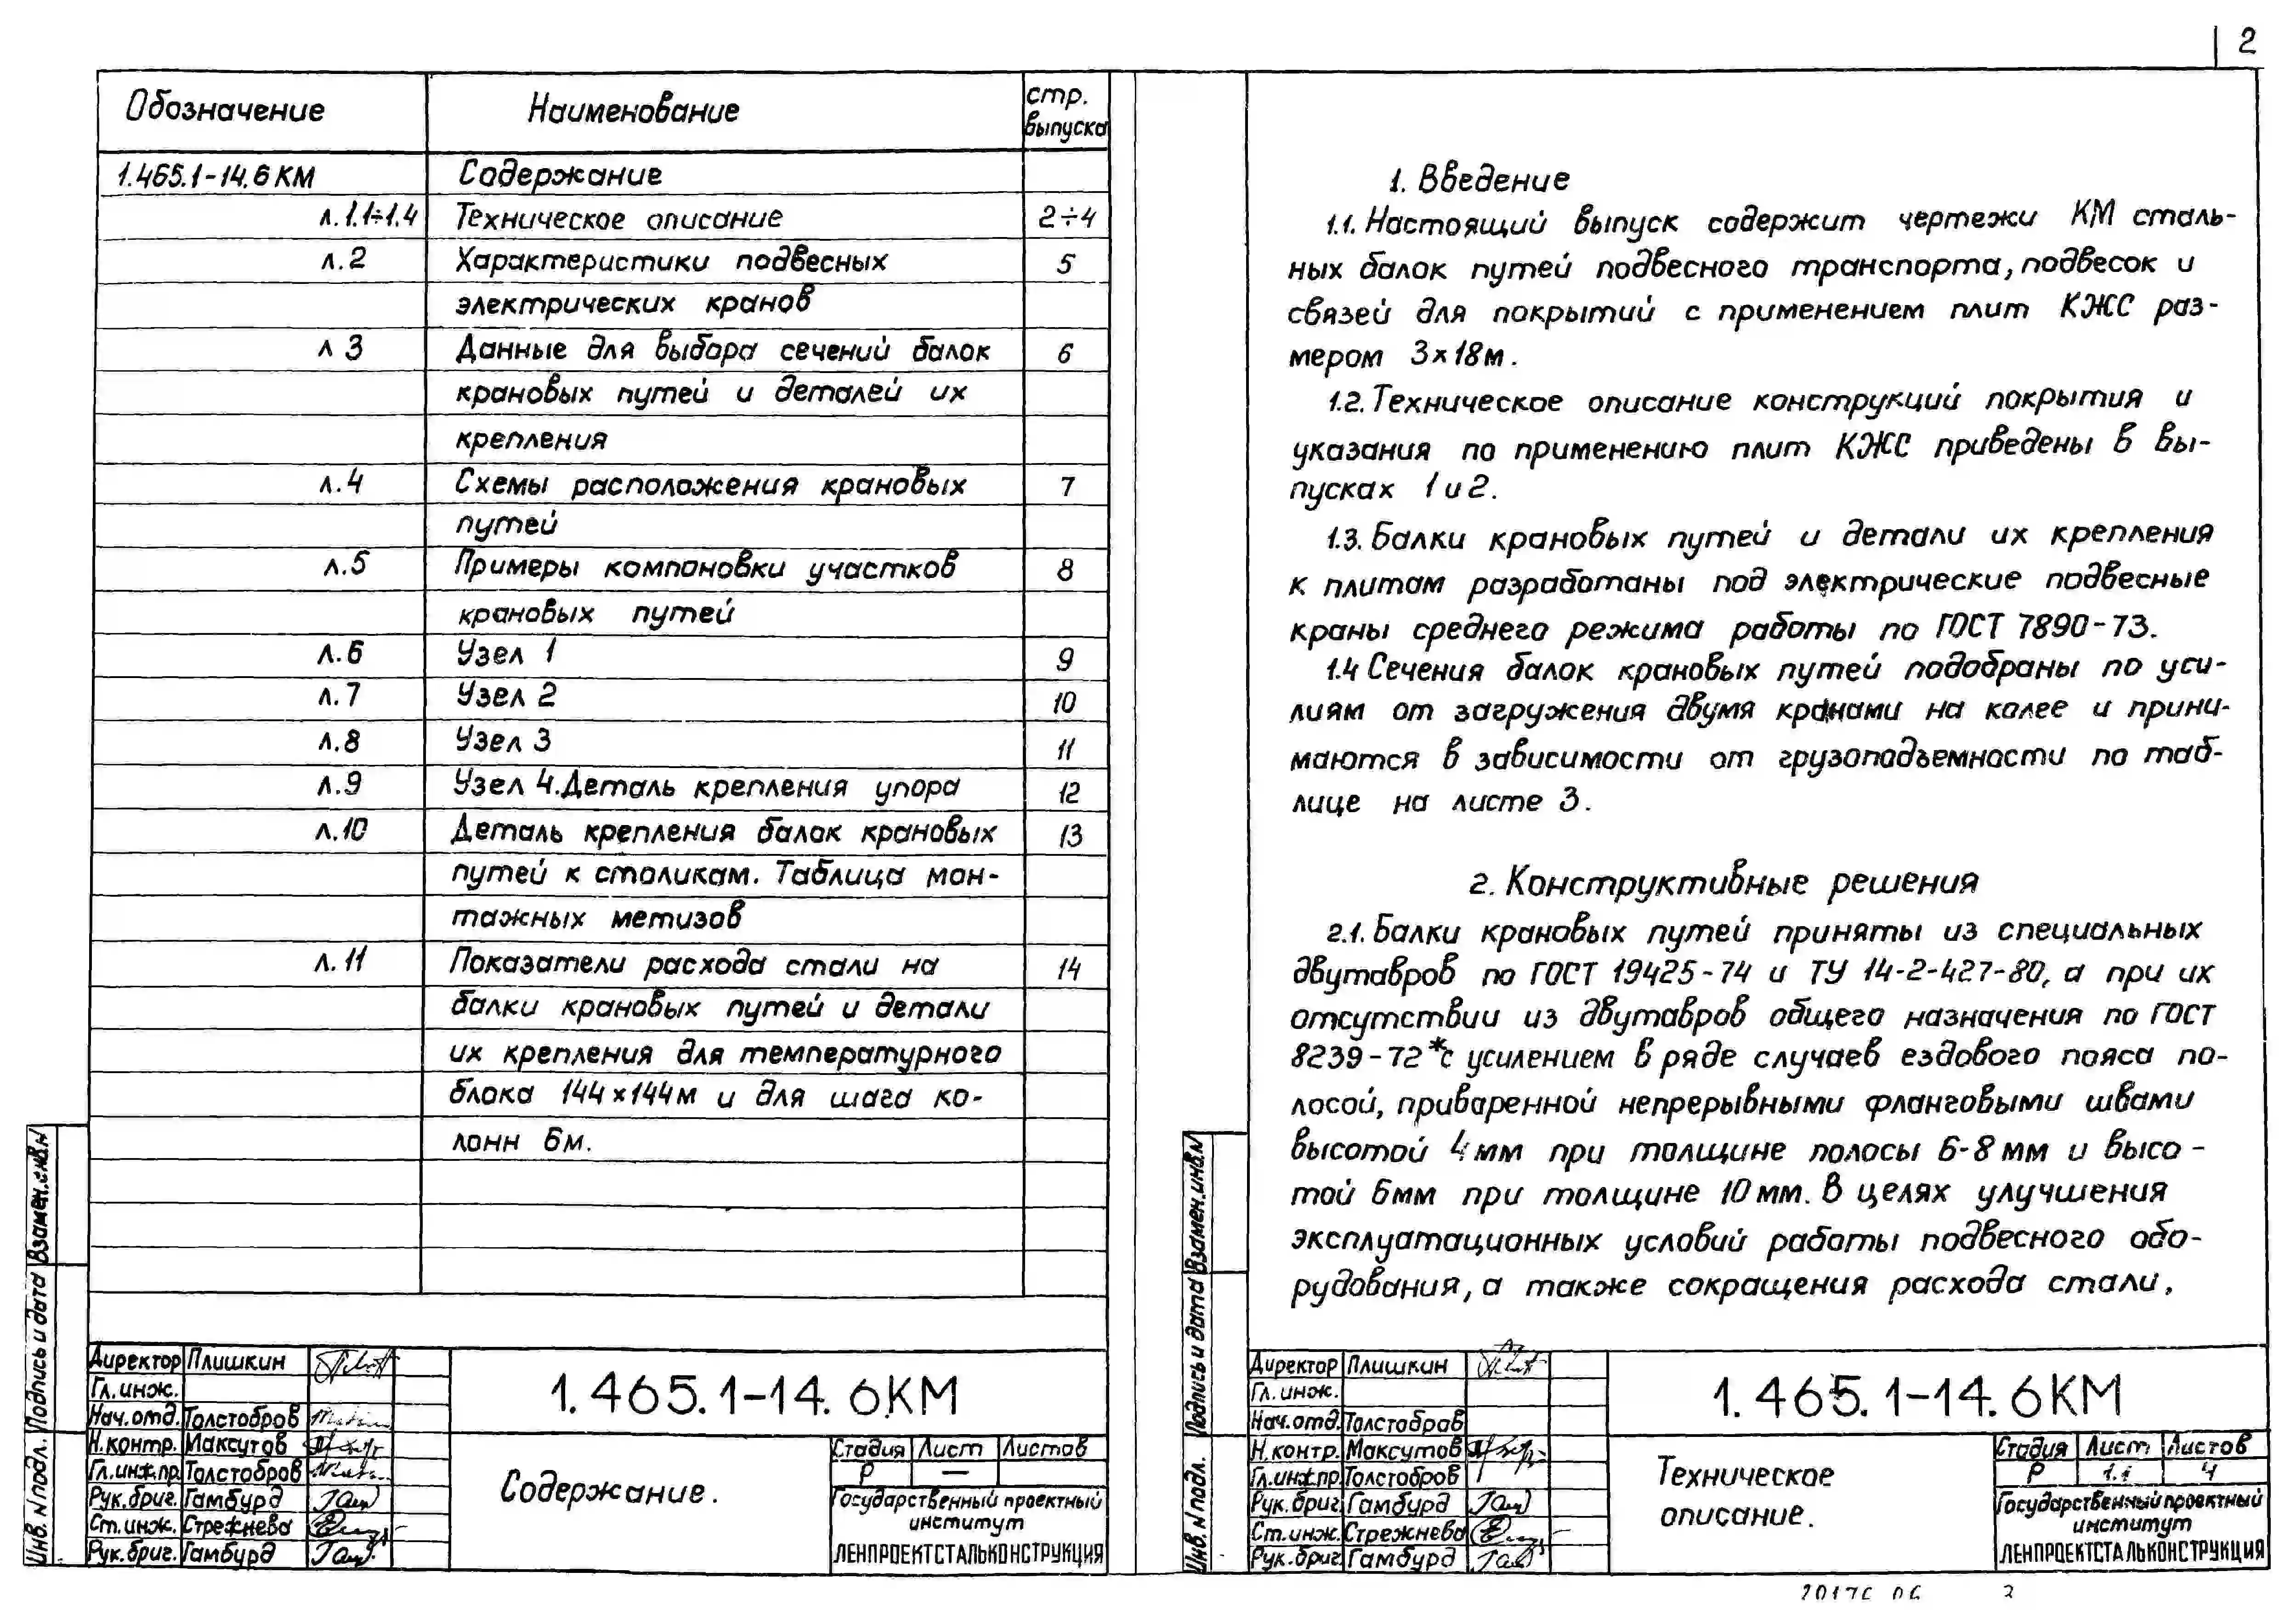 2
Обозначение Наименование стр. выпуска
1.465.1-14.6КМ Содержание
л.1.1÷1.4 Техническое описание 2÷4
л.2 Характеристики подвесных 5
электрических кранов
л 3 Данные для выбора сечений балок 6
крановых путей и деталей их
крепления
л.4 Схемы расположения крановых 7
путей
л.5 Примеры компоновки участков 8
крановых путей
л.6 Узел 1 9
л.7 Узел 2 10
л.8 Узел 3 11
л.9 Узел 4. Деталь крепления упора 12
л.10 Деталь крепления балок крановых 13
путей к столикам. Таблица мон-
тажных метизов
л.11 Показатели расхода стали на 14
балки крановых путей и детали
их крепления для температурного
блока 144×144м и для шага ко-
лонн 6м.
Взамен.инв.N
Подпись и дата
Инв.N подл.
Директор Плишкин
Гл.инж.
Нач.отд. Толстобров
Н.контр. Максутов
Гл.инж.пр. Толстобров
Рук.бриг. Гамбурд
Ст.инж. Стрежнева
Рук.бриг. Гамбурд
1.465.1-14.6КМ
Содержание.
Стадия Лист Листов
Р —
Государственный проектный
институт
ЛЕНПРОЕКТСТАЛЬКОНСТРУКЦИЯ
1. Введение
1.1. Настоящий выпуск содержит чертежи КМ сталь-
ных балок путей подвесного транспорта, подвесок и
связей для покрытий с применением плит КЖС раз-
мером 3×18м.
1.2. Техническое описание конструкций покрытия и
указания по применению плит КЖС приведены в вы-
пусках 1 и 2.
1.3. Балки крановых путей и детали их крепления
к плитам разработаны под электрические подвесные
краны среднего режима работы по ГОСТ 7890-73.
1.4 Сечения балок крановых путей подобраны по уси-
лиям от загружения двумя кранами на колее и прини-
маются в зависимости от грузоподъемности по таб-
лице на листе 3.
2. Конструктивные решения
2.1. Балки крановых путей приняты из специальных
двутавров по ГОСТ 19425-74 и ТУ 14-2-427-80, а при их
отсутствии из двутавров общего назначения по ГОСТ
8239-72* с усилением в ряде случаев ездового пояса по-
лосой, приваренной непрерывными фланговыми швами
высотой 4мм при толщине полосы 6-8 мм и высо-
той 6мм при толщине 10мм. В целях улучшения
эксплуатационных условий работы подвесного обо-
рудования, а также сокращения расхода стали,
Взамен.инв.N
Подпись и дата
Инв.N подл.
Директор Плишкин
Гл.инж.
Нач.отд. Толстобров
Н.контр. Максутов
Гл.инж.пр. Толстобров
Рук.бриг. Гамбурд
Ст.инж. Стрежнева
Рук.бриг. Гамбурд
1.465.1-14.6КМ
Техническое
описание.
Стадия Лист Листов
Р 1.1 4
Государственный проектный
институт
ЛЕНПРОЕКТСТАЛЬКОНСТРУКЦИЯ